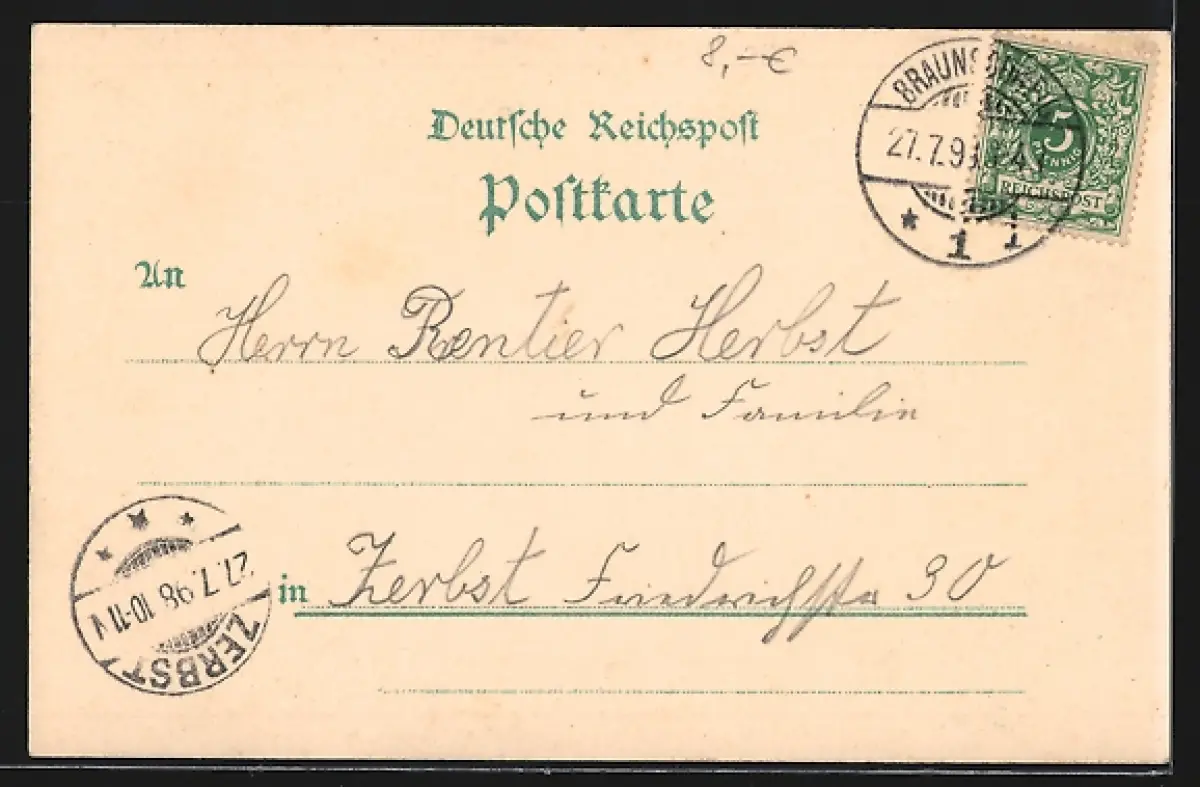 8,-€
Deutsche Reichspost
Postkarte
BRAUNSCHWEIG
27.7.98
* 1 1
5
PFENNIG
REICHSPOST
An
Herrn Rentier Herbst
und Familie
in Zerbst Friedrichstr 30
ZERBST
27.7.98 10-11 V